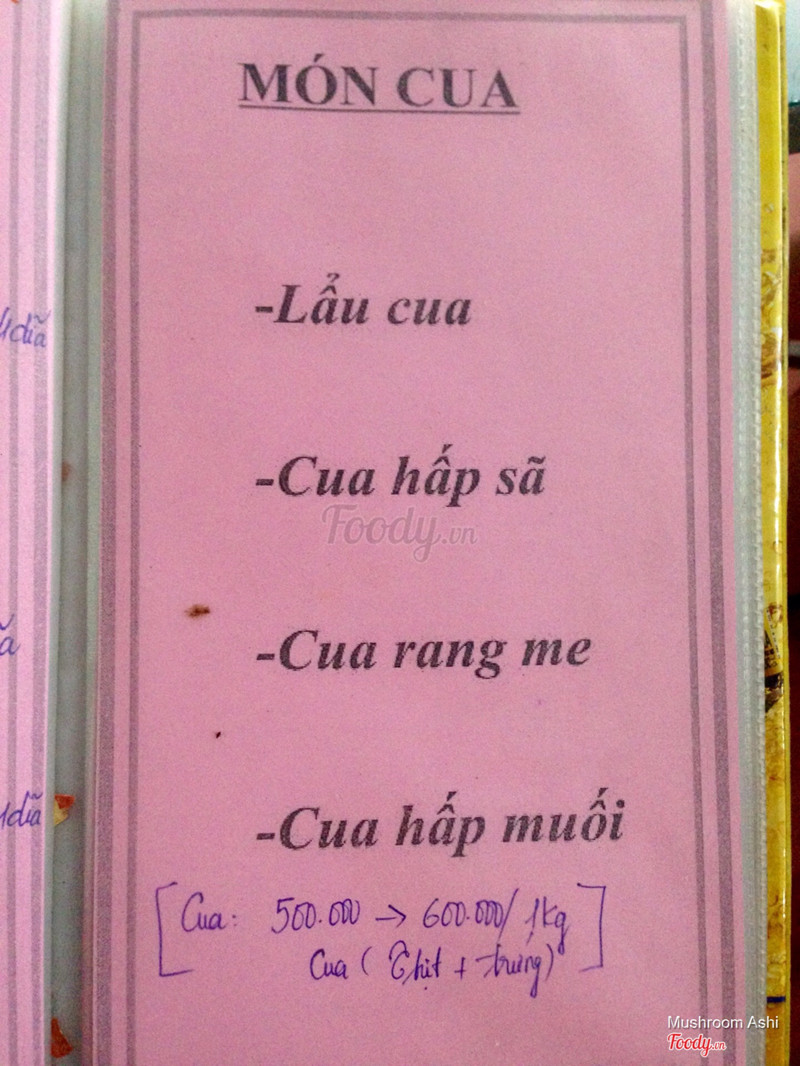 MÓN CUA
-Lẩu cua
-Cua hấp sã
Foody.vn
-Cua rang me
-Cua hấp muối
[Cua: 500.000 → 600.000/1kg]
Cua (Thịt + trứng)
1dĩã
ã
1dĩã
Mushroom Ashi
Foody.vn